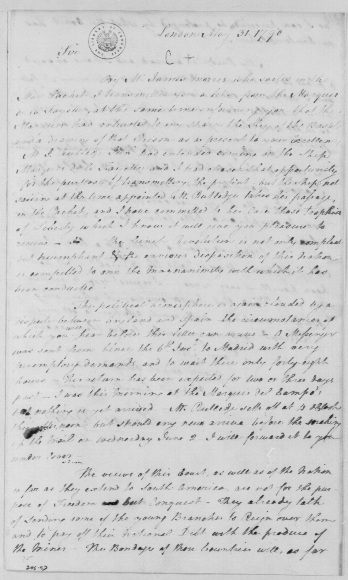 London May 31. 1790
Sir
By Mr James Mercer who sails in the
New Packet, I transmitted you a letter from the Marquis
de la Fayette at the same time informing you that the
Marquis had entrusted to my charge the Key of the Bastile
and a drawing of that Prison as a present to your
Mr J. Rutledge Junr had intended coming in the Ship
Marquis de la Fayette, and I had chosen that opportunity
for the purpose of transmitting the present, but the ship not
sailing at the time appointed Mr Rutledge takes his passage
in the Packet, and I have committed to his Care those trophies
of Liberty which I know it will give you pleasure to
receive – The french Revolution is not only complete
but triumphant & the envious disposition of this Nation
is compelled to own the magnanimity with which it has
been conducted.
The political hemisphere is again clouded by a
dispute between England and Spain the circumstances of
which you will hear before this letter can arrive. A Messenger
was sent from hence the 6th Inst. to Madrid with very
peremptory demands, and to wait there only forty eight
hours – His return has been expected for two or three days
past – I was this morning at the Marquis del Campo's
but nothing is yet arrived. Mr Rutledge sets off at
this afternoon but should any news arrive before the making
up the mail on Wednesday June 2 I will forward it to you
under Cover
The views of this Court as well as of the Nation
so far as they extend to South America, are not for the pur-
pose of Freedom but Conquest – They already talk
of sending some of the young Branches to Reign over them
and to pay off their National Debt with the produce of
the Mines – The Bondage of those Countries will, as far